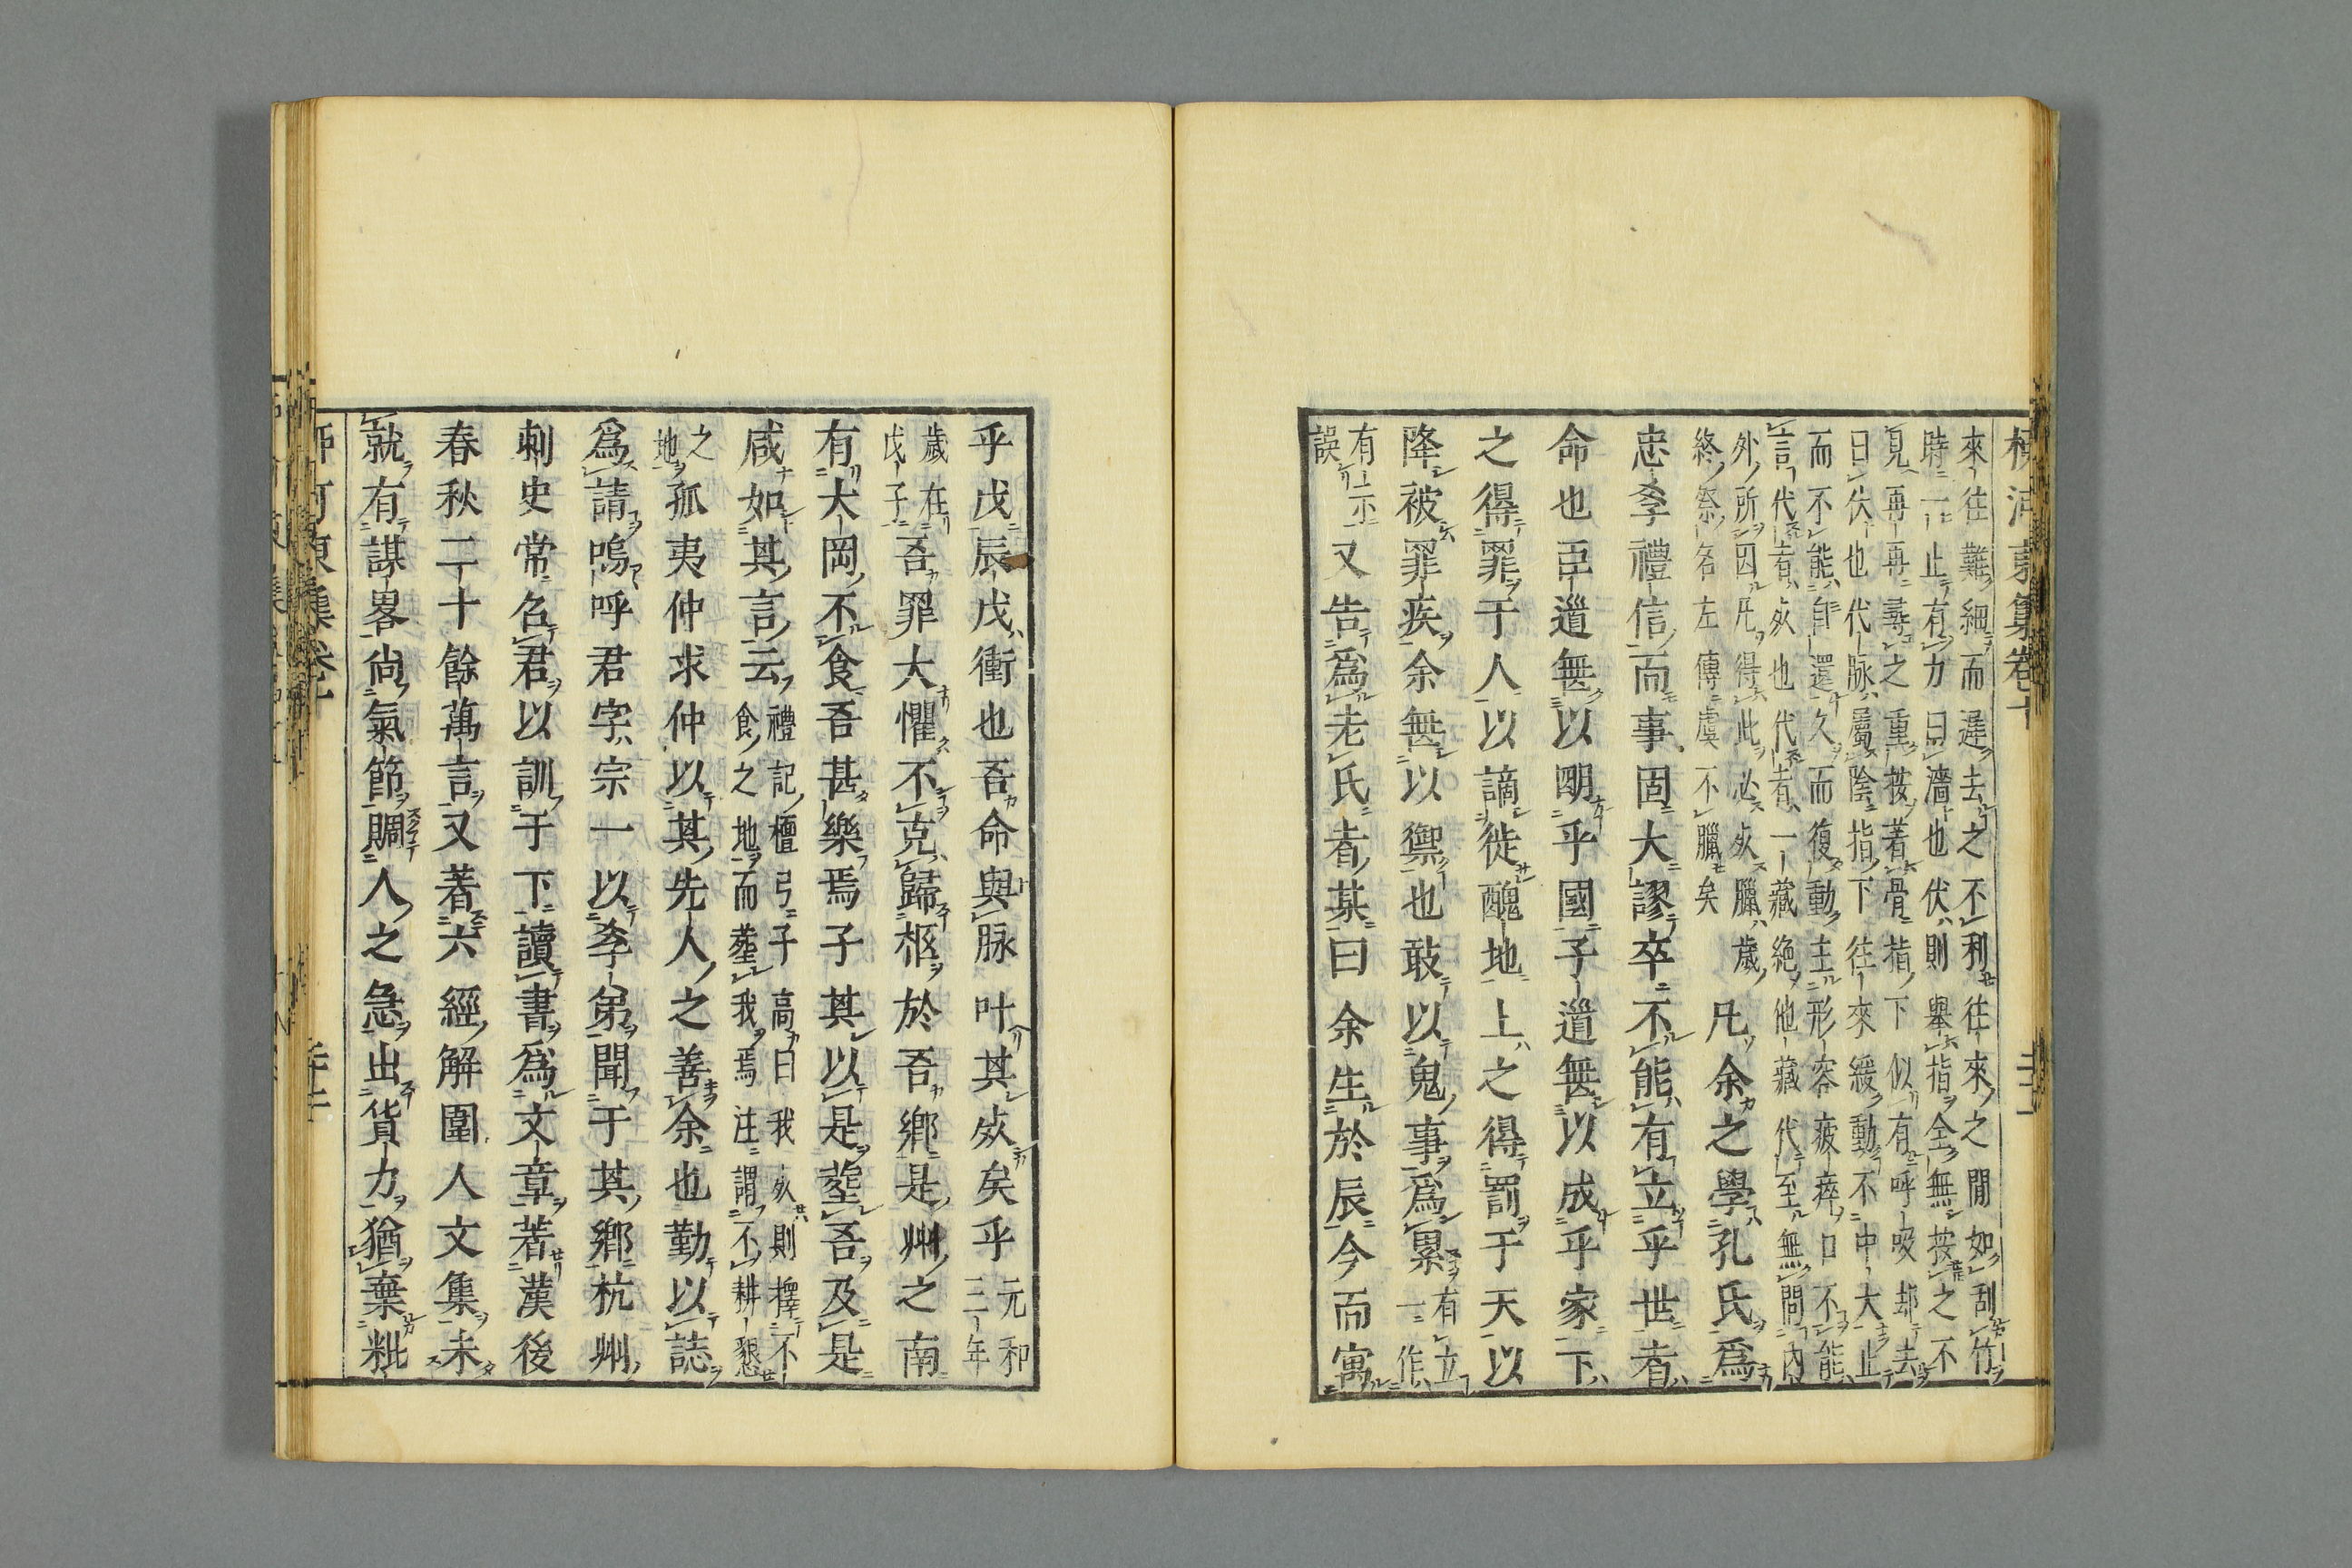 來往難細而遲去之不利往來之間如刮竹
時一止有力曰濇也伏則舉指全無按之不
見再再尋之重按著骨指下似有呼吸却去
曰伏也代脉屬陰指下往來緩動不中大止
而不能自還久而復動主形容疲瘁口不能
言代者死也代者一藏絶他藏代至無間內
外所因凡得此必死臘歲
終祭名左傳虞不臘矣
凡余之學孔氏爲
忠孝禮信而事固大謬卒不能有立乎世者
命也臣道無以明乎國子道無以成乎家下
之得罪于人以謫徙醜地上之得罰于天以
降被罪疾余無以禦也敢以鬼事爲累
有立
一作
有二
誤
又告爲老氏者某曰余生於辰今而寓
乎戊辰戌衝也吾命與脉叶其死矣乎
元和
三年
歲在
戊子
吾罪大懼不克歸柩於吾鄉是州之南
有大岡不食吾甚樂焉子其以是葬吾及是
咸如其言云
禮記檀弓子高曰我死則擇不
食之地而葬我焉注謂不耕墾
之
地
孤夷仲求仲以其先人之善余也勤以誌
爲請嗚呼君字宗一以孝弟聞于其鄉杭州
刺史常召君以訓于下讀書爲文章著漢後
春秋二十餘萬言又著六經解圍人文集未
就有謀畧尚氣節賙人之急出貨力猶棄粃